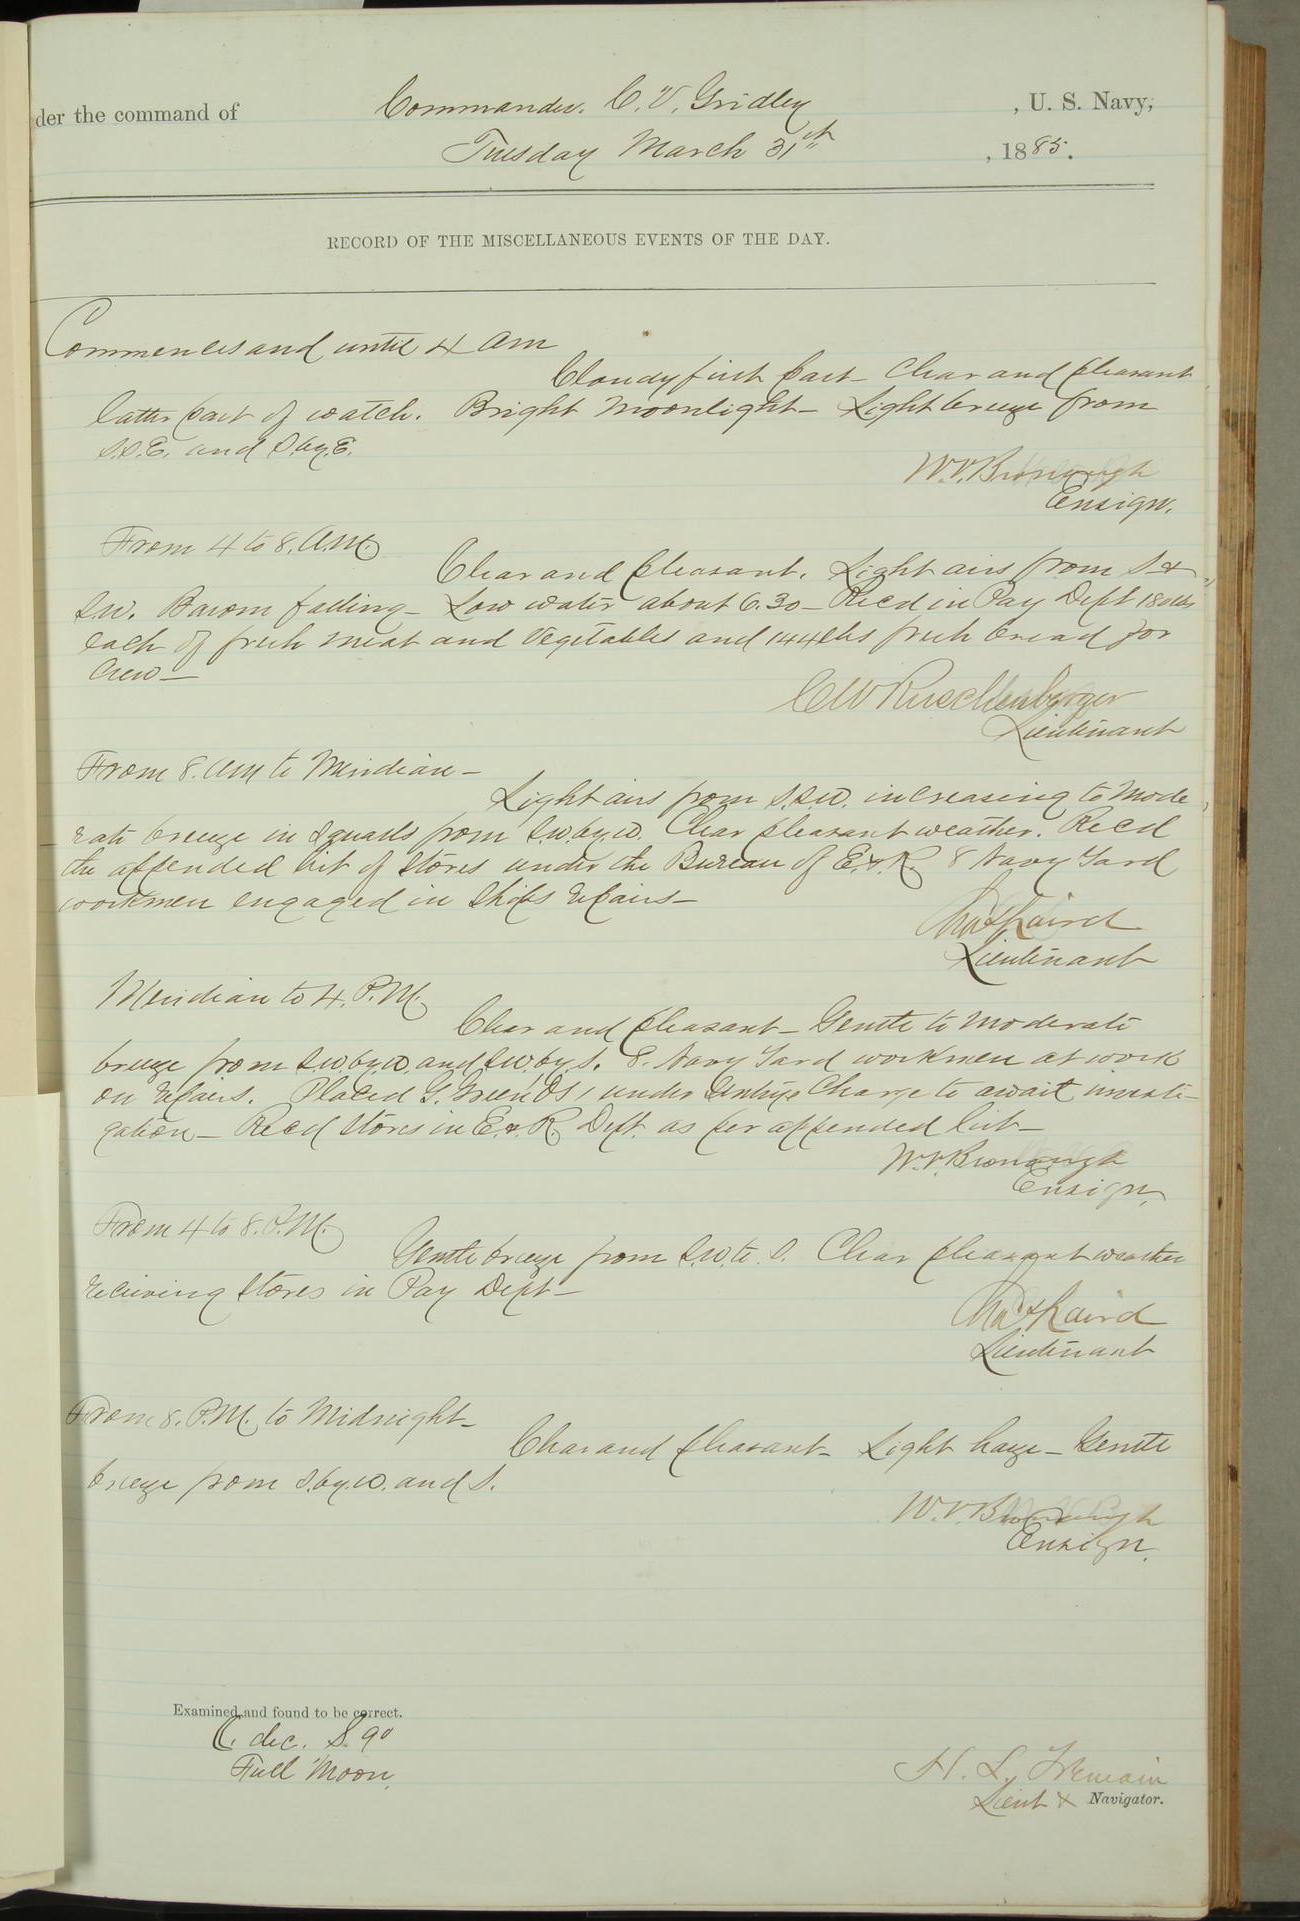 der the command of Commander. C. V. Gridley , U. S. Navy,
Tuesday March 31st , 1885.
RECORD OF THE MISCELLANEOUS EVENTS OF THE DAY.
Commences and until 4 am
Cloudy first part - Clear and pleasant
latter part of watch. Bright Moonlight - Light breeze from
S.S.E. and S.by.E.
W.V. Bronaugh
Ensign.
From 4 to 8. A.M.
Clear and pleasant. Light airs from S &
S.W. Barom falling - Low water about 6.30 - Rec'd in Pay Dept 180 lbs
each of fresh meat and Vegetables and 144 lbs fresh bread for
Crew -
C W Ruschenberger
Lieutenant
From 8. AM to Meridian -
Light airs from S.S.W. increasing to Mode
rate breeze in squalls from S.W.by.W. Clear pleasant weather. Rec'd
the appended list of Stores under the Bureau of E. & R. 8 Navy Yard
workmen engaged in Ship's repairs -
Chas Laird
Lieutenant
Meridian to 4. P.M.
Clear and pleasant - Gentle to Moderate
breeze from S.W.by.W. and S.W.by.S. 8. Navy Yard workmen at work
on repairs. Placed G. under Sentry's Charge to await investi-
gation - Rec'd Stores in E. & R. Dept. as per appended list -
W.V. Bronaugh
Ensign.
From 4 to 8. P.M.
Gentle breeze from S.W. to S. Clear pleasant weather
receiving Stores in Pay Dept -
Chas Laird
Lieutenant
From 8. P.M. to Midnight -
Clear and pleasant - Light haze - Gentle
breeze from S.by.W. and S.
W.V. Bronaugh
Ensign.
Examined and found to be correct.
☾. dec. S. 9°
Full Moon.
H. L. Tremain
Lieut & Navigator.